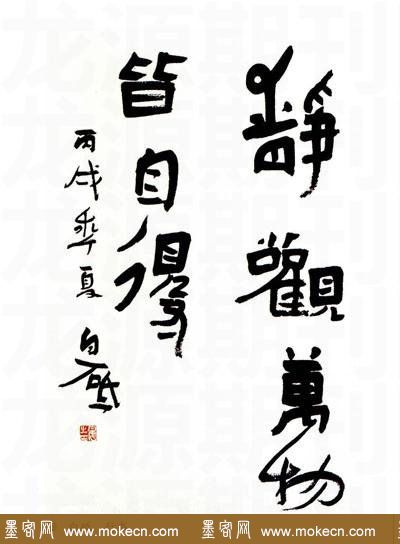 靜觀萬物
皆自得
丙戌季夏
白砥
墨客网 www.mokecn.com 墨客网 www.mokecn.com
龙源期刊